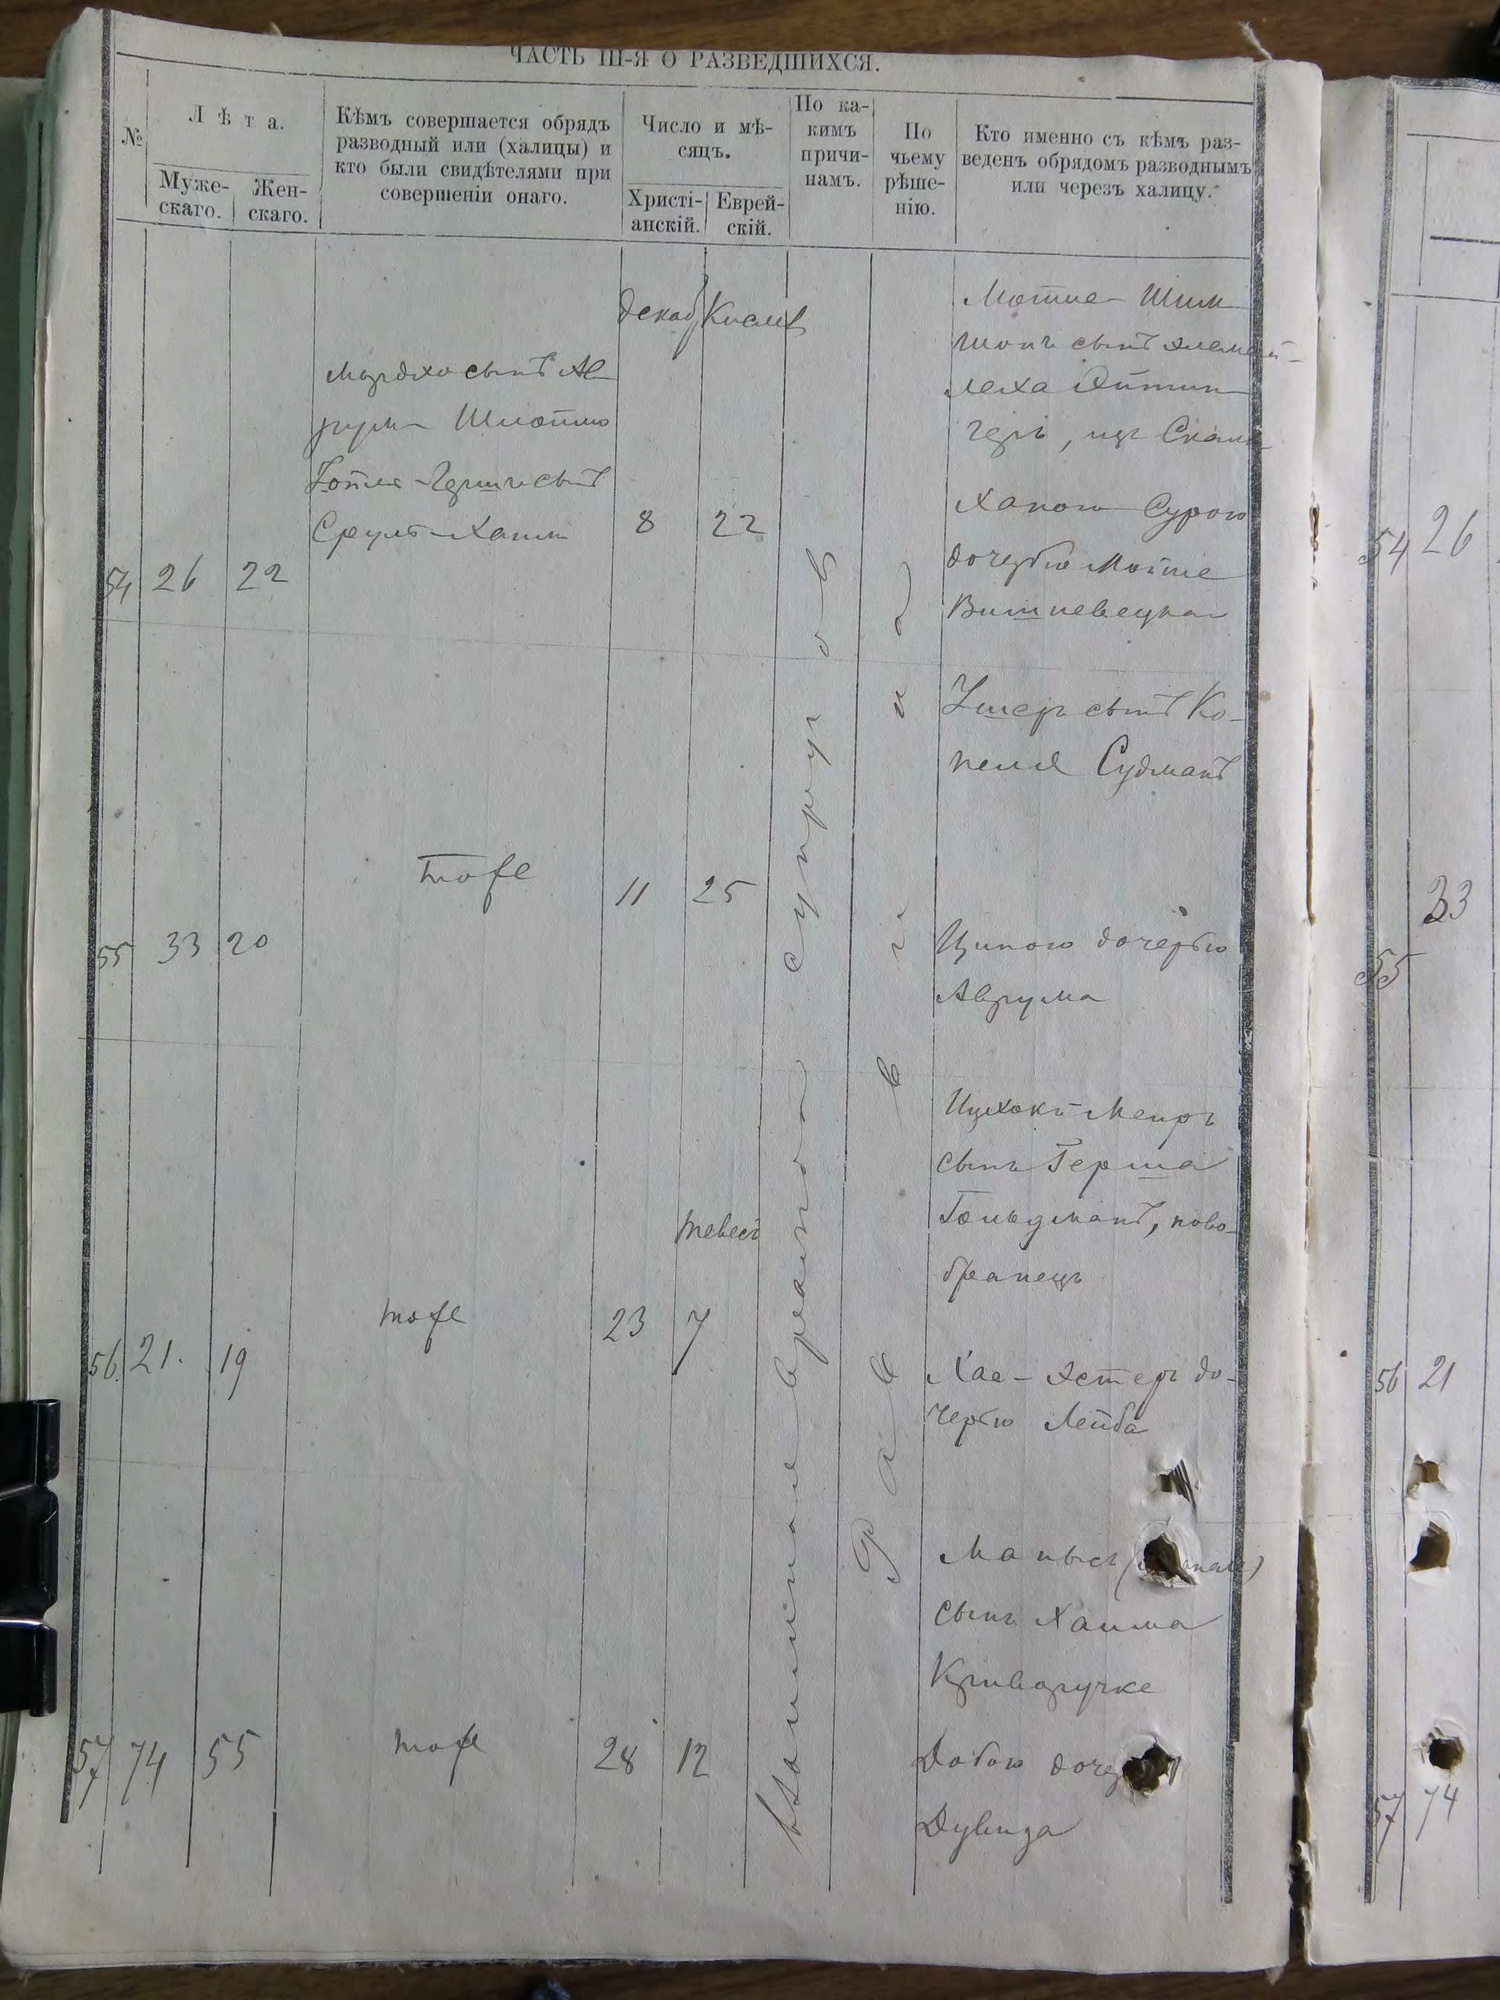 ЧАСТЬ III-Я О РАЗВЕДШИХСЯ.
№
Лѣта.
Муже-
скаго.
Жен-
скаго.
Кѣмъ совершается обрядъ
разводный или (халицы) и
кто были свидѣтелями при
совершеніи онаго.
Число и мѣ-
сяцъ.
Христі-
анскій.
Еврей-
скій.
По ка-
кимъ
причи-
намъ.
По
чьему
рѣше-
нію.
Кто именно съ кѣмъ раз-
веденъ обрядомъ разводнымъ
или черезъ халицу.
54 26 22
Мордхо сынъ Ав
румъ
сынъ
Сруль-Хаим
Декаб Кислев
8 22
Шим
шонъ сынъ
леха
изъ
Ханою Сурою
дочерью Мойше
Вишневецка
55 33 20
тоже
11 25
Ушеръ сынъ Ко-
пеля Судманъ
Ципою дочерью
Аврума
56 21. 19
тоже
Тевесъ
23 7
Ицхокъ-Меиръ
сынъ Герша
Гольдманъ, ново-
бранецъ
Хае-Эстеръ до-
черью Лейба
57 74 55
тоже
28 12
Манысъ
сынъ Хаима
Криворучке
Добою
Дувида
взаимное супруговъ
Раввина
54 26
33
55
56 21
57 74